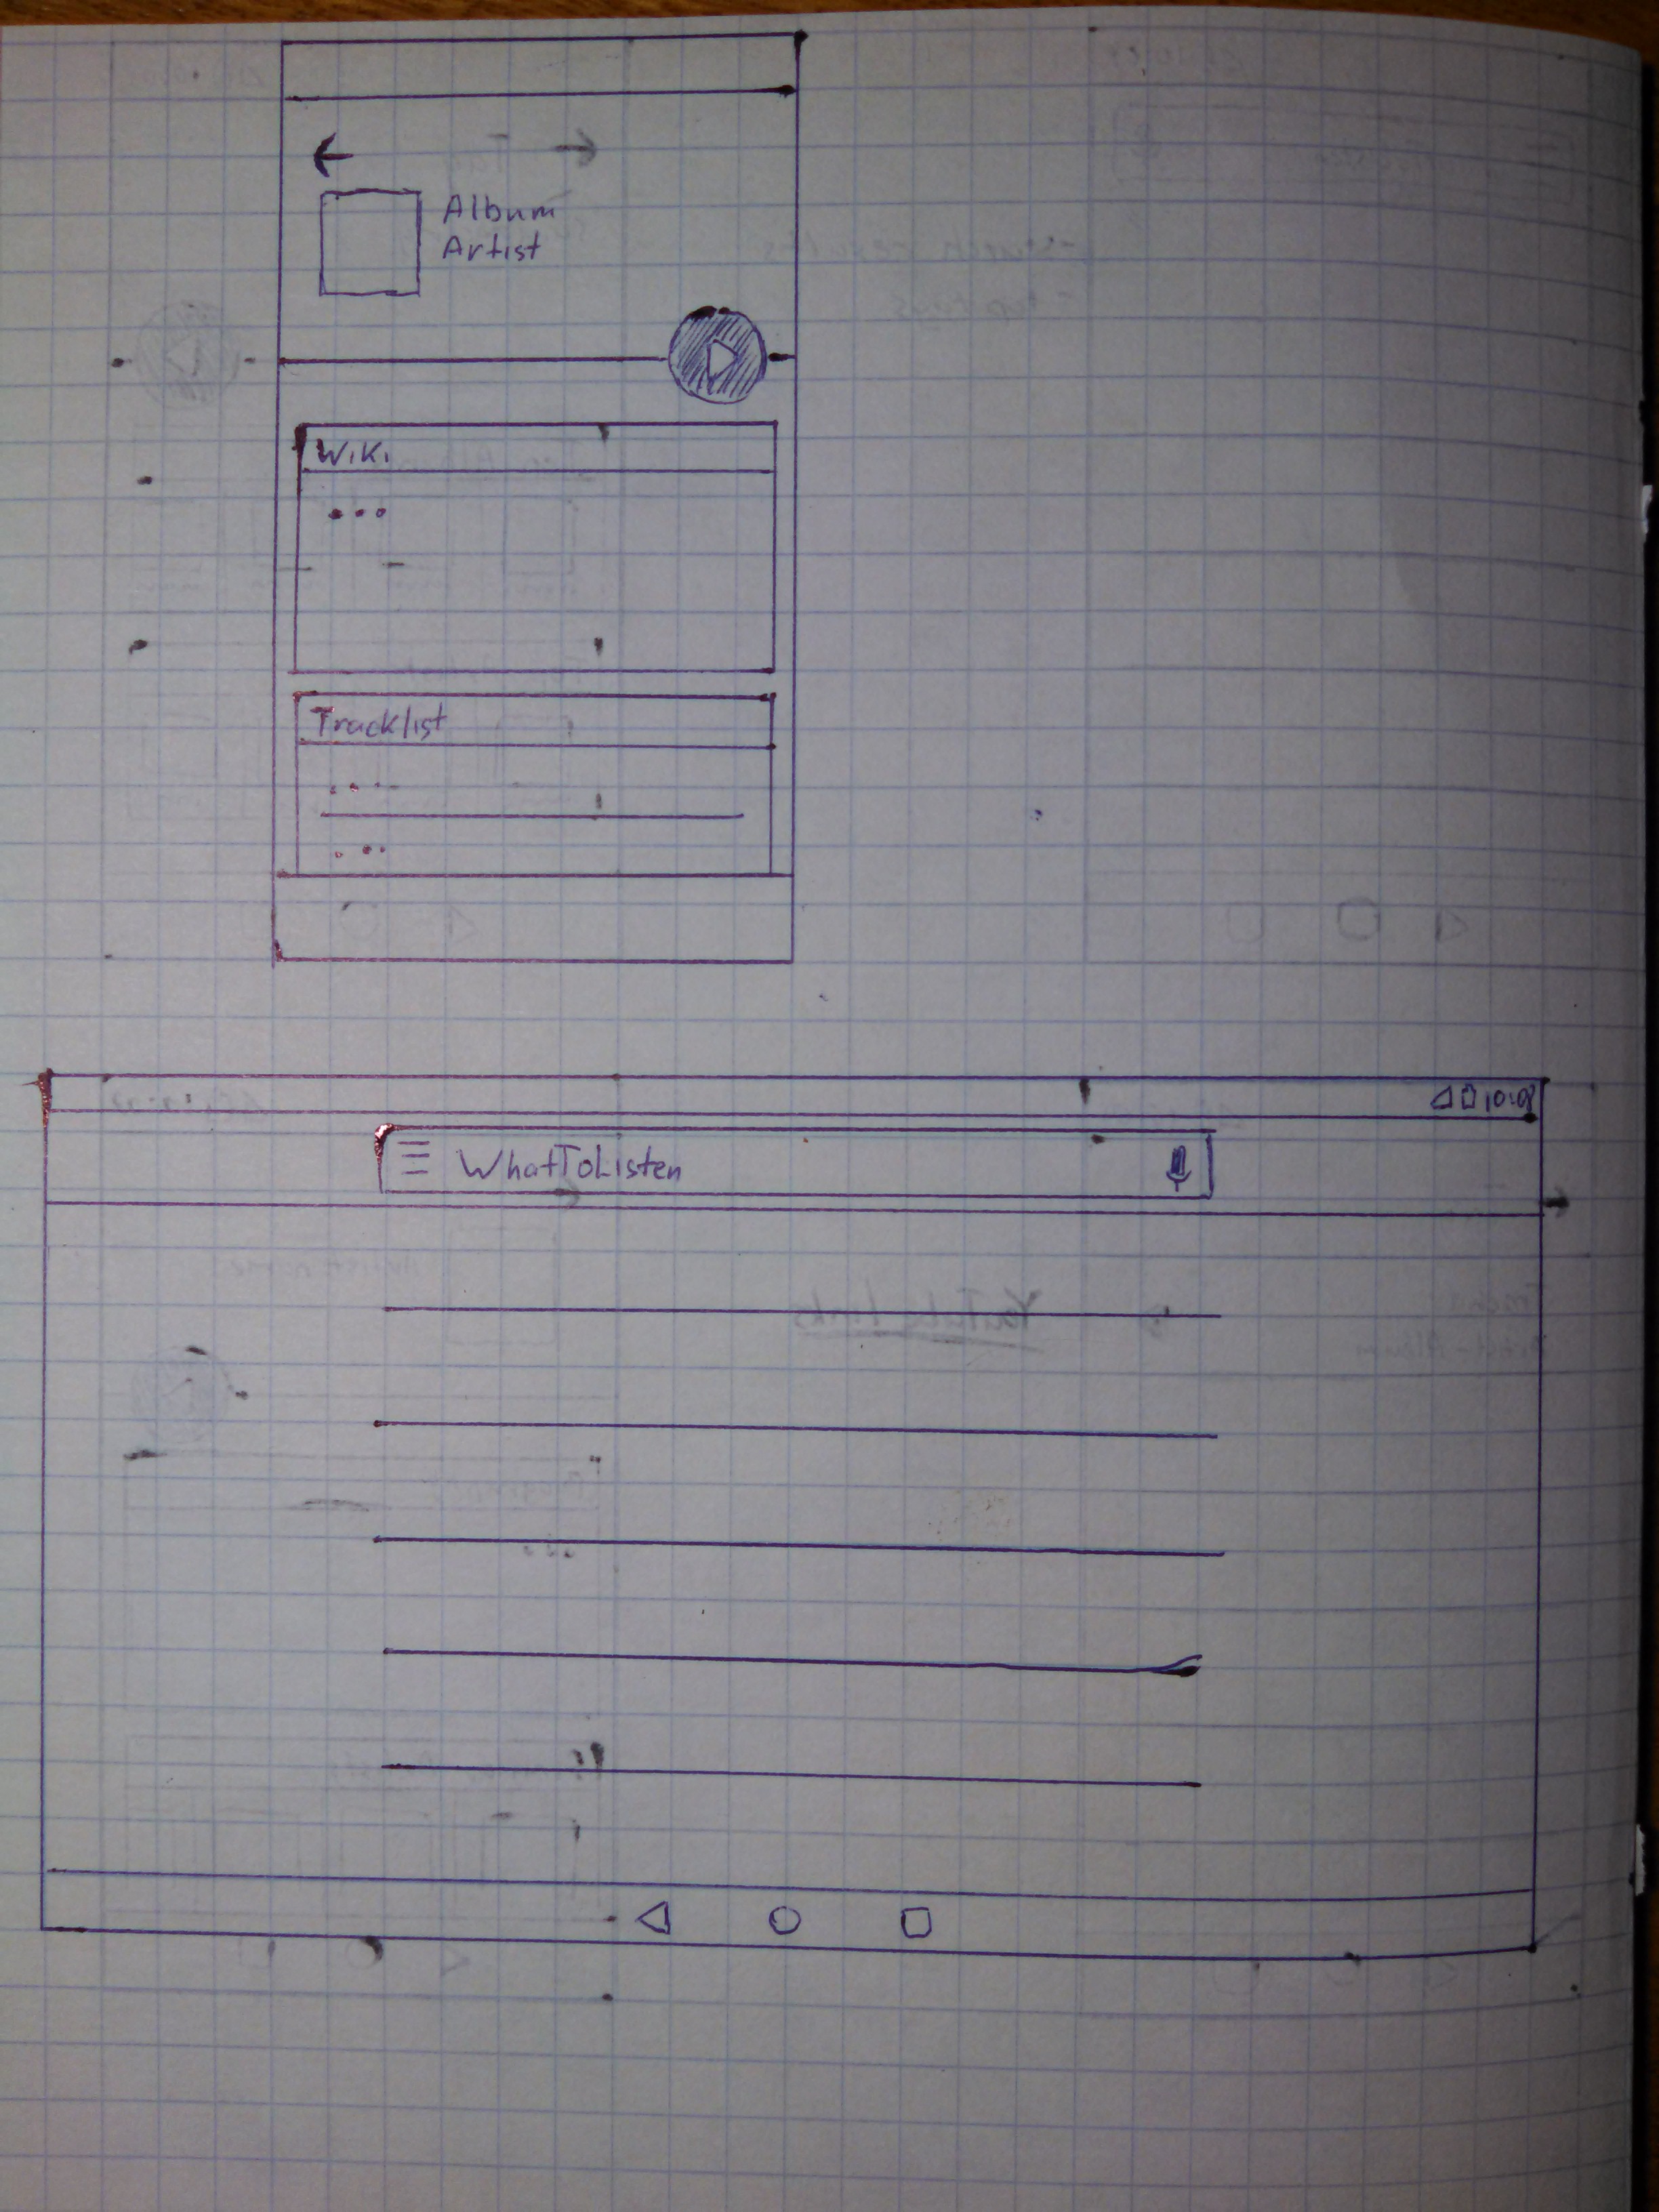 Album
Artist
Wiki
...
Tracklist
...
...
10:08
WhatToListen